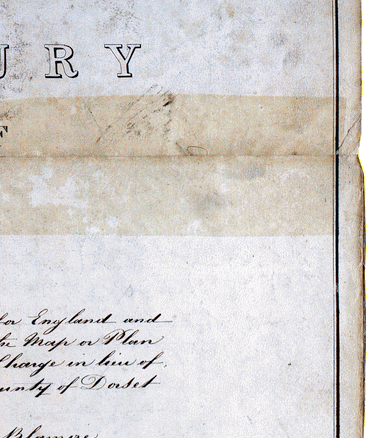 URY
F
for England and
the Map or Plan
Charge in lieu of
ounty of Dorset
Blamire